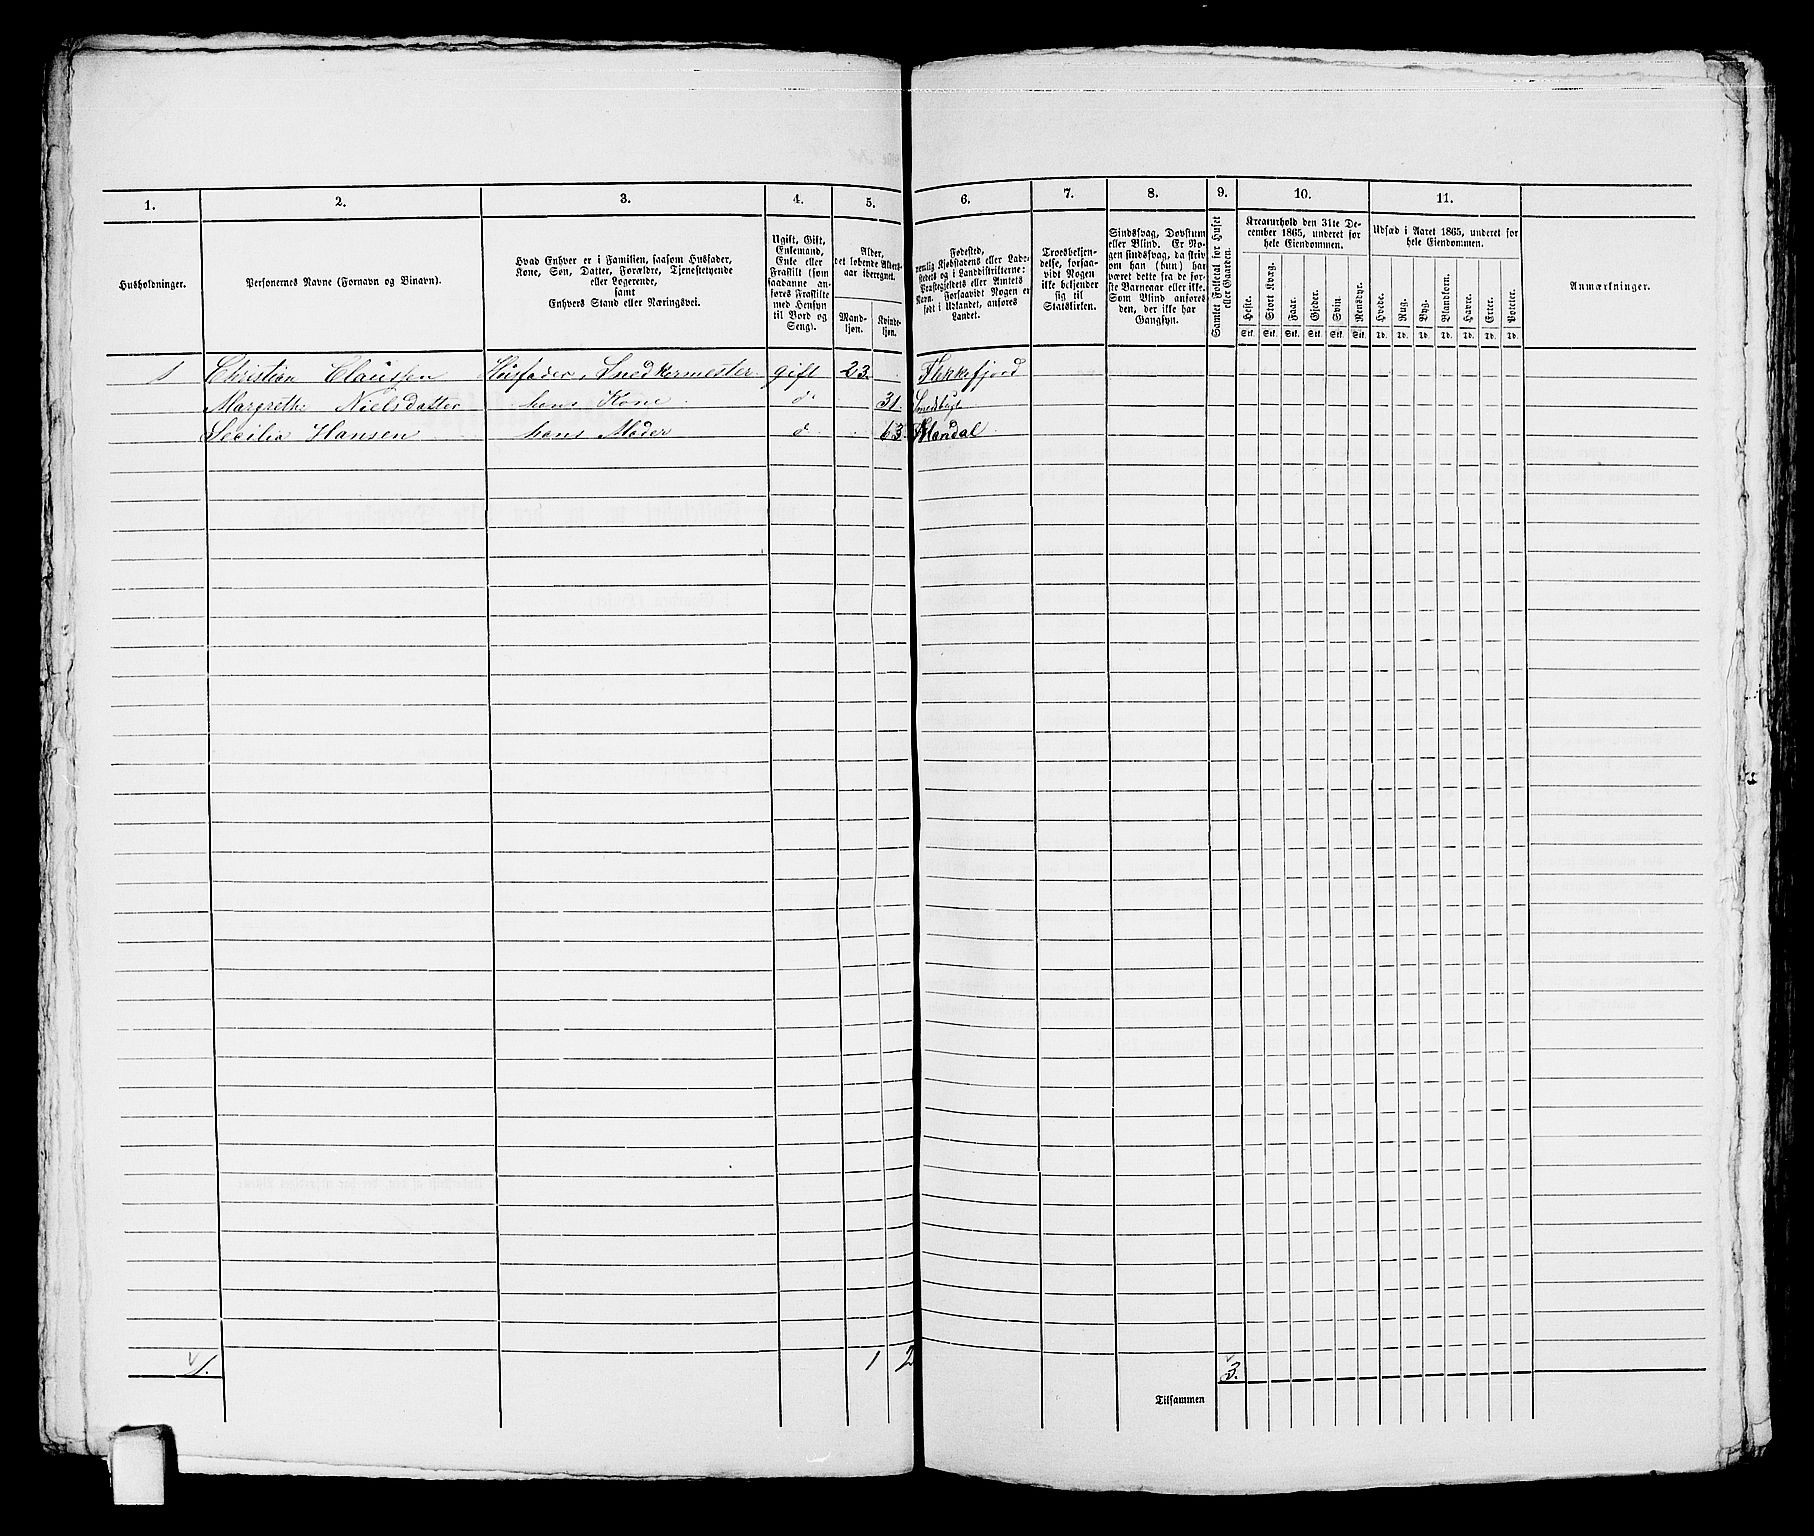 1. 2. 3. 4. 5. 6. 7. 8. 9. 10. 11.
Husholdninger.
Personernes Navne (Fornavn og Binavn).
Hvad Enhver er i Familien, saasom Husfader,
Kone, Søn, Datter, Forældre, Tjenestetyende
eller Logerende,
samt
Enhvers Stand eller Næringsvei.
Ugift, Gift,
Enkemand,
Enke eller
Fraskilt (som
saadanne an-
føres Fraskilte
med Hensyn
til Bord og
Seng).
Alder,
det løbende Alders-
aar iberegnet.
Mand-
kjøn.
Kvinde-
kjøn.
Fødested,
nemlig Kjøbstadens eller Lade-
stedets og i Landdistrikterne:
Præstegjeldets eller Amtets
Navn. Forsaavidt Nogen er
født i Udlandet, anføres
Landet.
Troesbekjen-
delse, forsaa-
vidt Nogen
ikke bekjender
sig til
Statskirken.
Sindssvag, Døvstum
eller Blind. Er No-
gen sindssvag, da skriv
om han (hun) har
været dette fra de før-
ste Barneaar eller ikke.
Som Blind anføres
den, der ikke har
Gangsyn.
Samlet Folketal for Huset
eller Gaarden.
Kreaturhold den 31te De-
cember 1865, underet for
hele Eiendommen.
Heste. Stort Kvæg. Faar. Gjeder. Svin. Rensdyr.
Stk. Stk. Stk. Stk. Stk. Stk.
Udsæd i Aaret 1865, underet for
hele Eiendommen.
Hvede. Rug. Byg. Blandkorn. Havre. Erter. Poteter.
Td. Td. Td. Td. Td. Td. Td.
Anmærkninger.
1 Christian Claussen Husfader, Snedkermester gift 23. Flekkefjord
Margrethe Nielsdatter hans Kone do 31.
Secilia Hansen hans Moder do 63. Mandal
1. 1 2 3.
Tilsammen